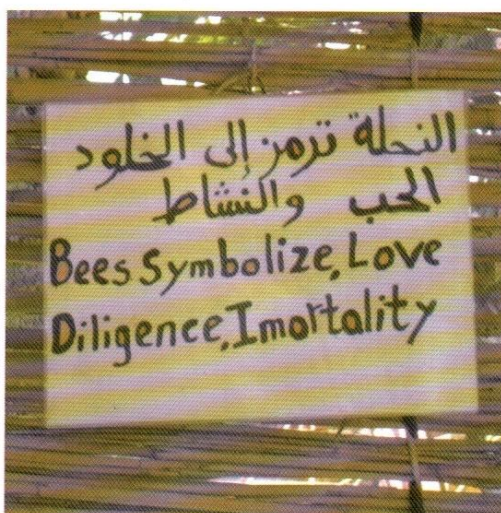 النحلة ترمز إلى الخلود
الحب والنشاط
Bees Symbolize, Love
Diligence, Imortality